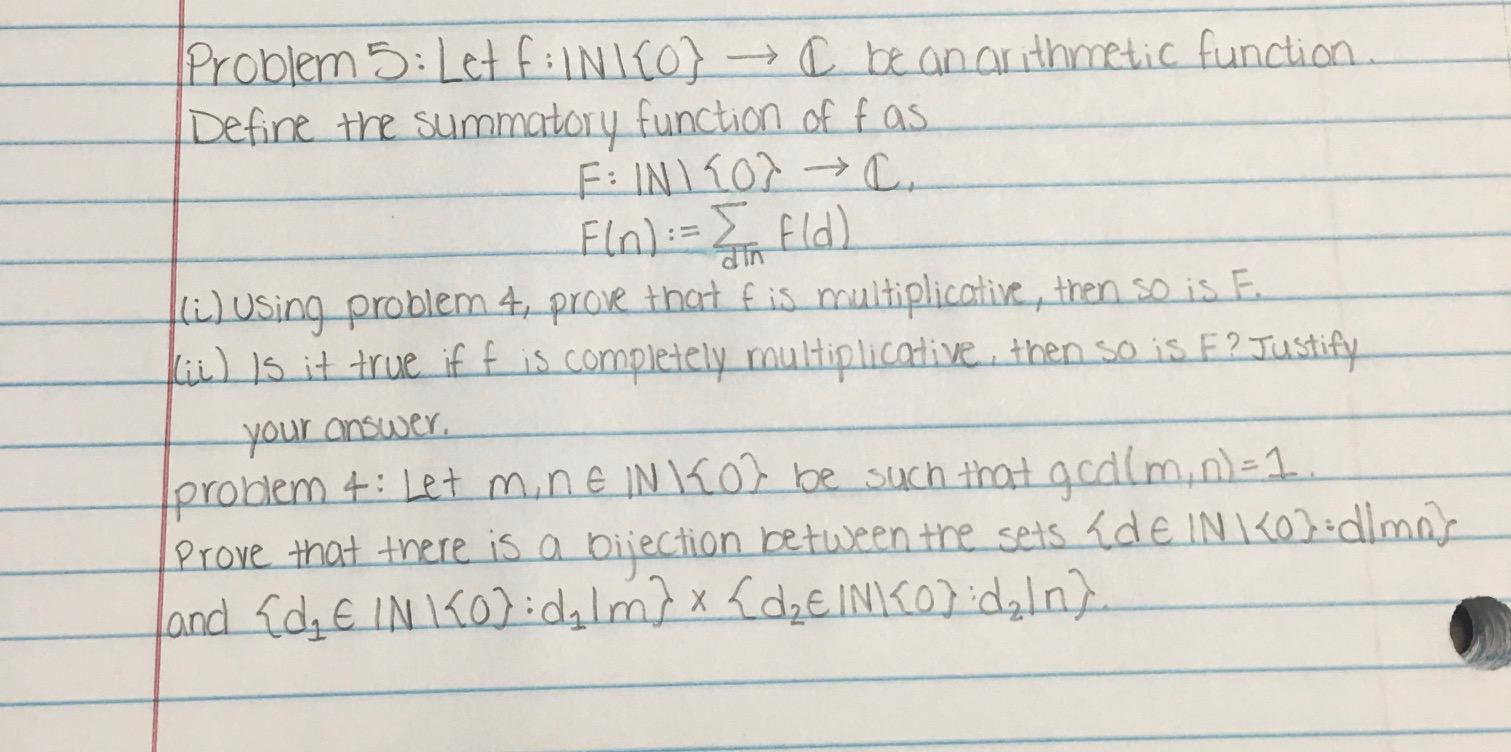 Problem 5: Let f: ℕ\{0} → ℂ be an arithmetic function.
Define the summatory function of f as
F: ℕ\{0} → ℂ,
F(n) := ∑_{d|n} f(d)
(i) Using problem 4, prove that f is multiplicative, then so is F.
(ii) Is it true if f is completely multiplicative, then so is F? Justify
your answer.
problem 4: Let m,n ∈ ℕ\{0} be such that gcd(m,n)=1.
Prove that there is a bijection between the sets {d ∈ ℕ\{0}: d|mn}
and {d₁ ∈ ℕ\{0}: d₁|m} × {d₂ ∈ ℕ\{0}: d₂|n}.